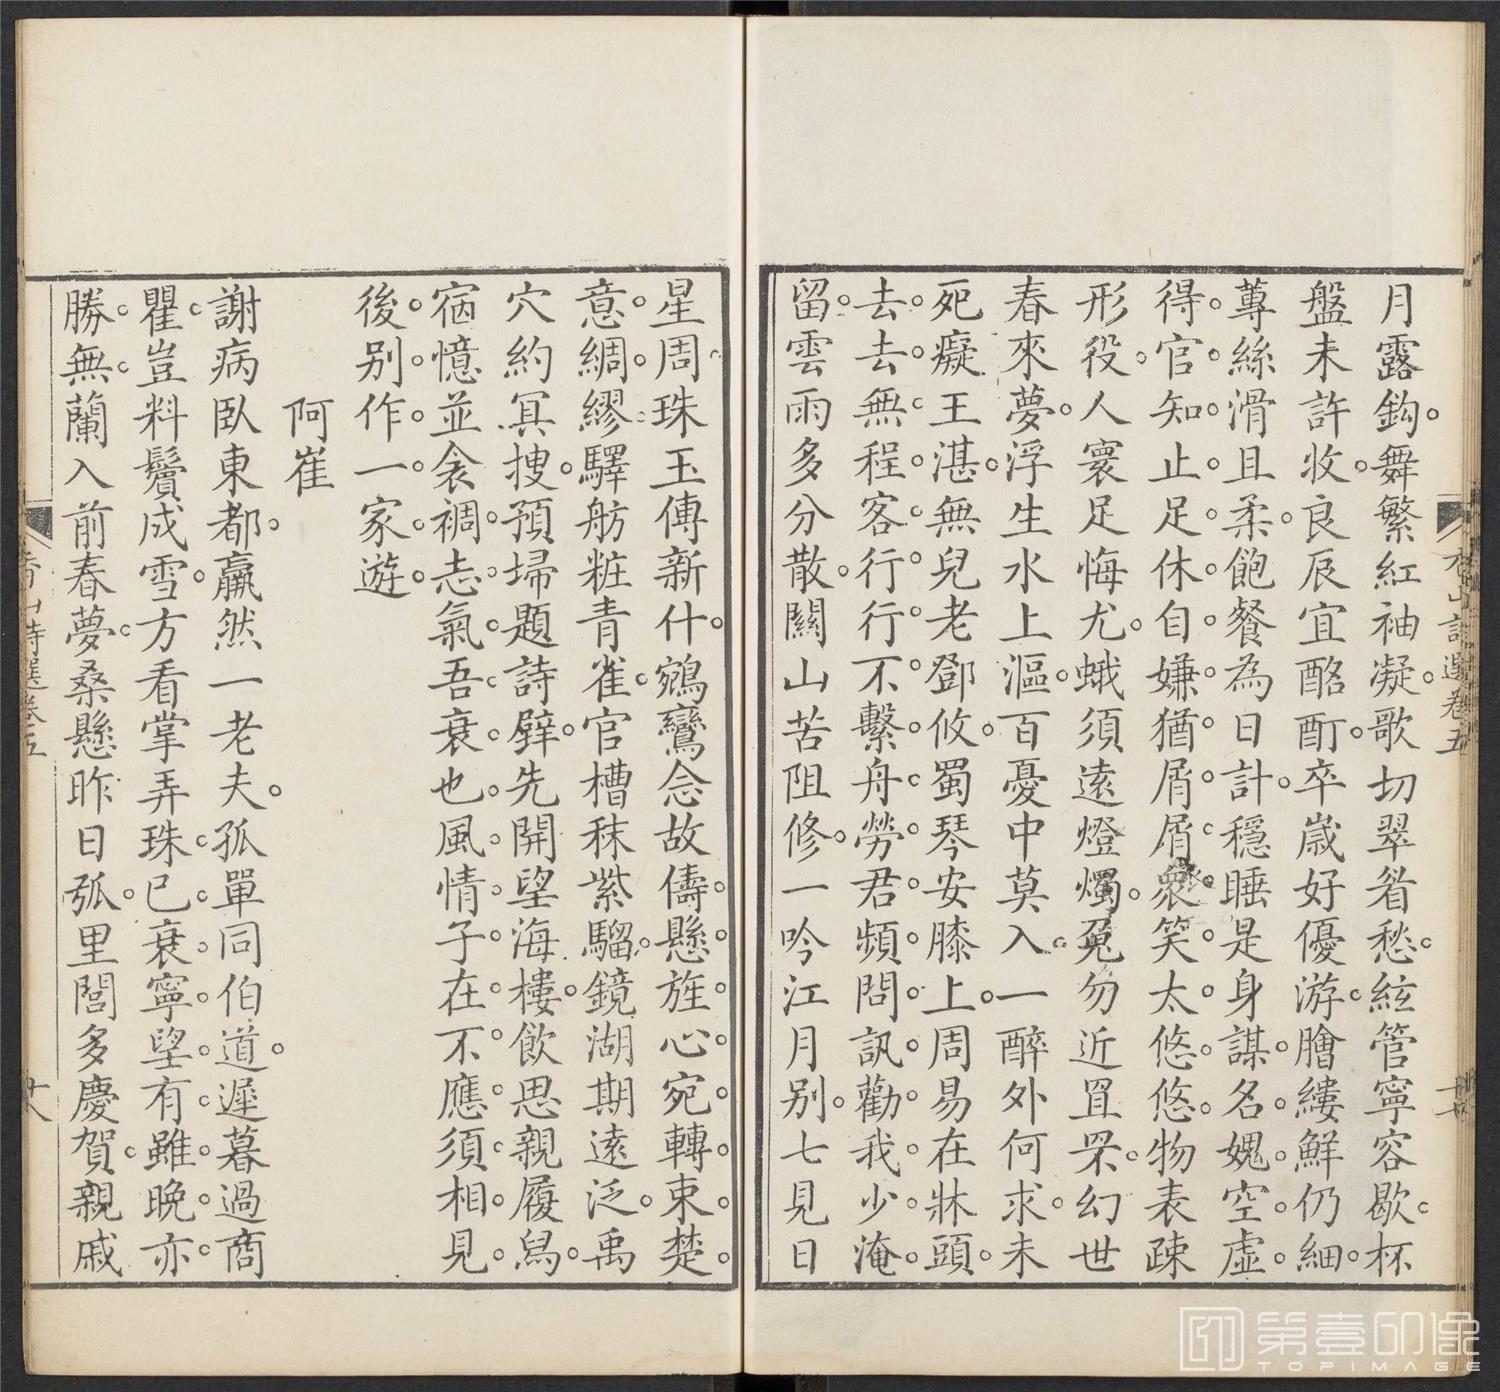 月露鈎舞繁紅袖凝歌切翠眉愁絃管寧容歇杯
盤未許收良辰宜酩酊卒歲好優游膾縷鮮仍細
蓴絲滑且柔飽餐為日計穩睡是身謀名媿空虛
得官知止足休自嫌猶屑屑衆笑太悠悠物表疎
形役人寰足悔尤蛾須遠燈燭兔勿近罝罘幻世
春來夢浮生水上漚百憂中莫入一醉外何求未
死癡王湛無兒老鄧攸蜀琴安膝上周易在牀頭
去去無程客行行不繫舟勞君頻問訊勸我少淹
留雲雨多分散關山苦阻修一吟江月别七見日
星周珠玉傳新什鵷鸞念故儔懸旌心宛轉束楚
意綢繆驛舫粧青雀官槽秣紫騮鏡湖期遠泛禹
穴約冥搜預埽題詩壁先開望海樓飲思親履舄
宿憶並衾裯志氣吾衰也風情子在不應須相見
後别作一家遊
阿崔
謝病臥東都羸然一老夫孤單同伯道遲暮過商
瞿豈料鬢成雪方看掌弄珠已衰寧望有雖晚亦
勝無蘭入前春夢桑懸昨日弧里閭多慶賀親戚
香山詩選卷五
十七
香山詩選卷五
十八
第壹印像
TOPIMAGE